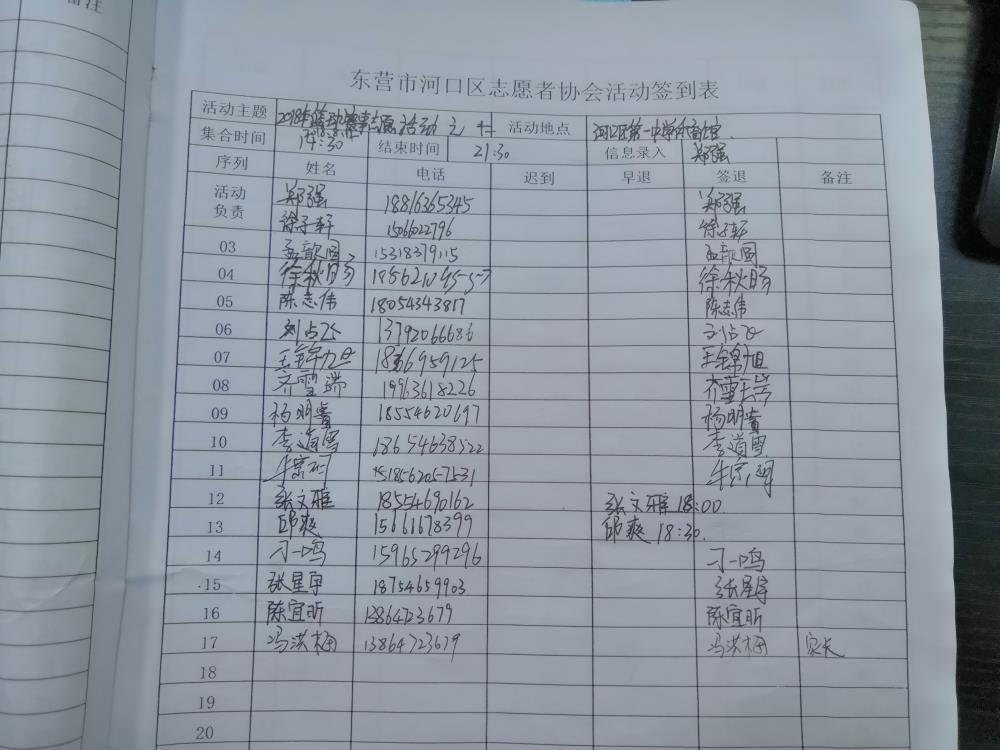 备注
东营市河口区志愿者协会活动签到表
活动主题 2018年 活动 活动地点 河口区第一中学体育馆
集合时间 14:30 结束时间 21:30 信息录入 郑强
序列 姓名 电话 迟到 早退 签退 备注
活动负责 郑强 18816365345 郑强
徐子轩 15066022796 徐子轩
03 孟歆圆 15318379115 孟歆圆
04 徐秋阳 徐秋阳
05 陈志伟 18054343817 陈志伟
06 刘占飞 13792066686 刘占飞
07 王锦旭 王锦旭
08 齐雪瑞 19963618226 齐雪瑞
09 杨明 18554620697 杨明
10 李道 18654638522 李道
11 牛宗 牛宗
12 张文雅 18554690162 张文雅 18:00
13 邱爽 15661678399 邱爽 18:30.
14 刁一鸣 15965299296 刁一鸣
15 张星宇 18754659903 张星宇
16 陈宜昕 13864723679 陈宜昕
17 冯洪梅 13864723679 冯洪梅 家长
18
19
20